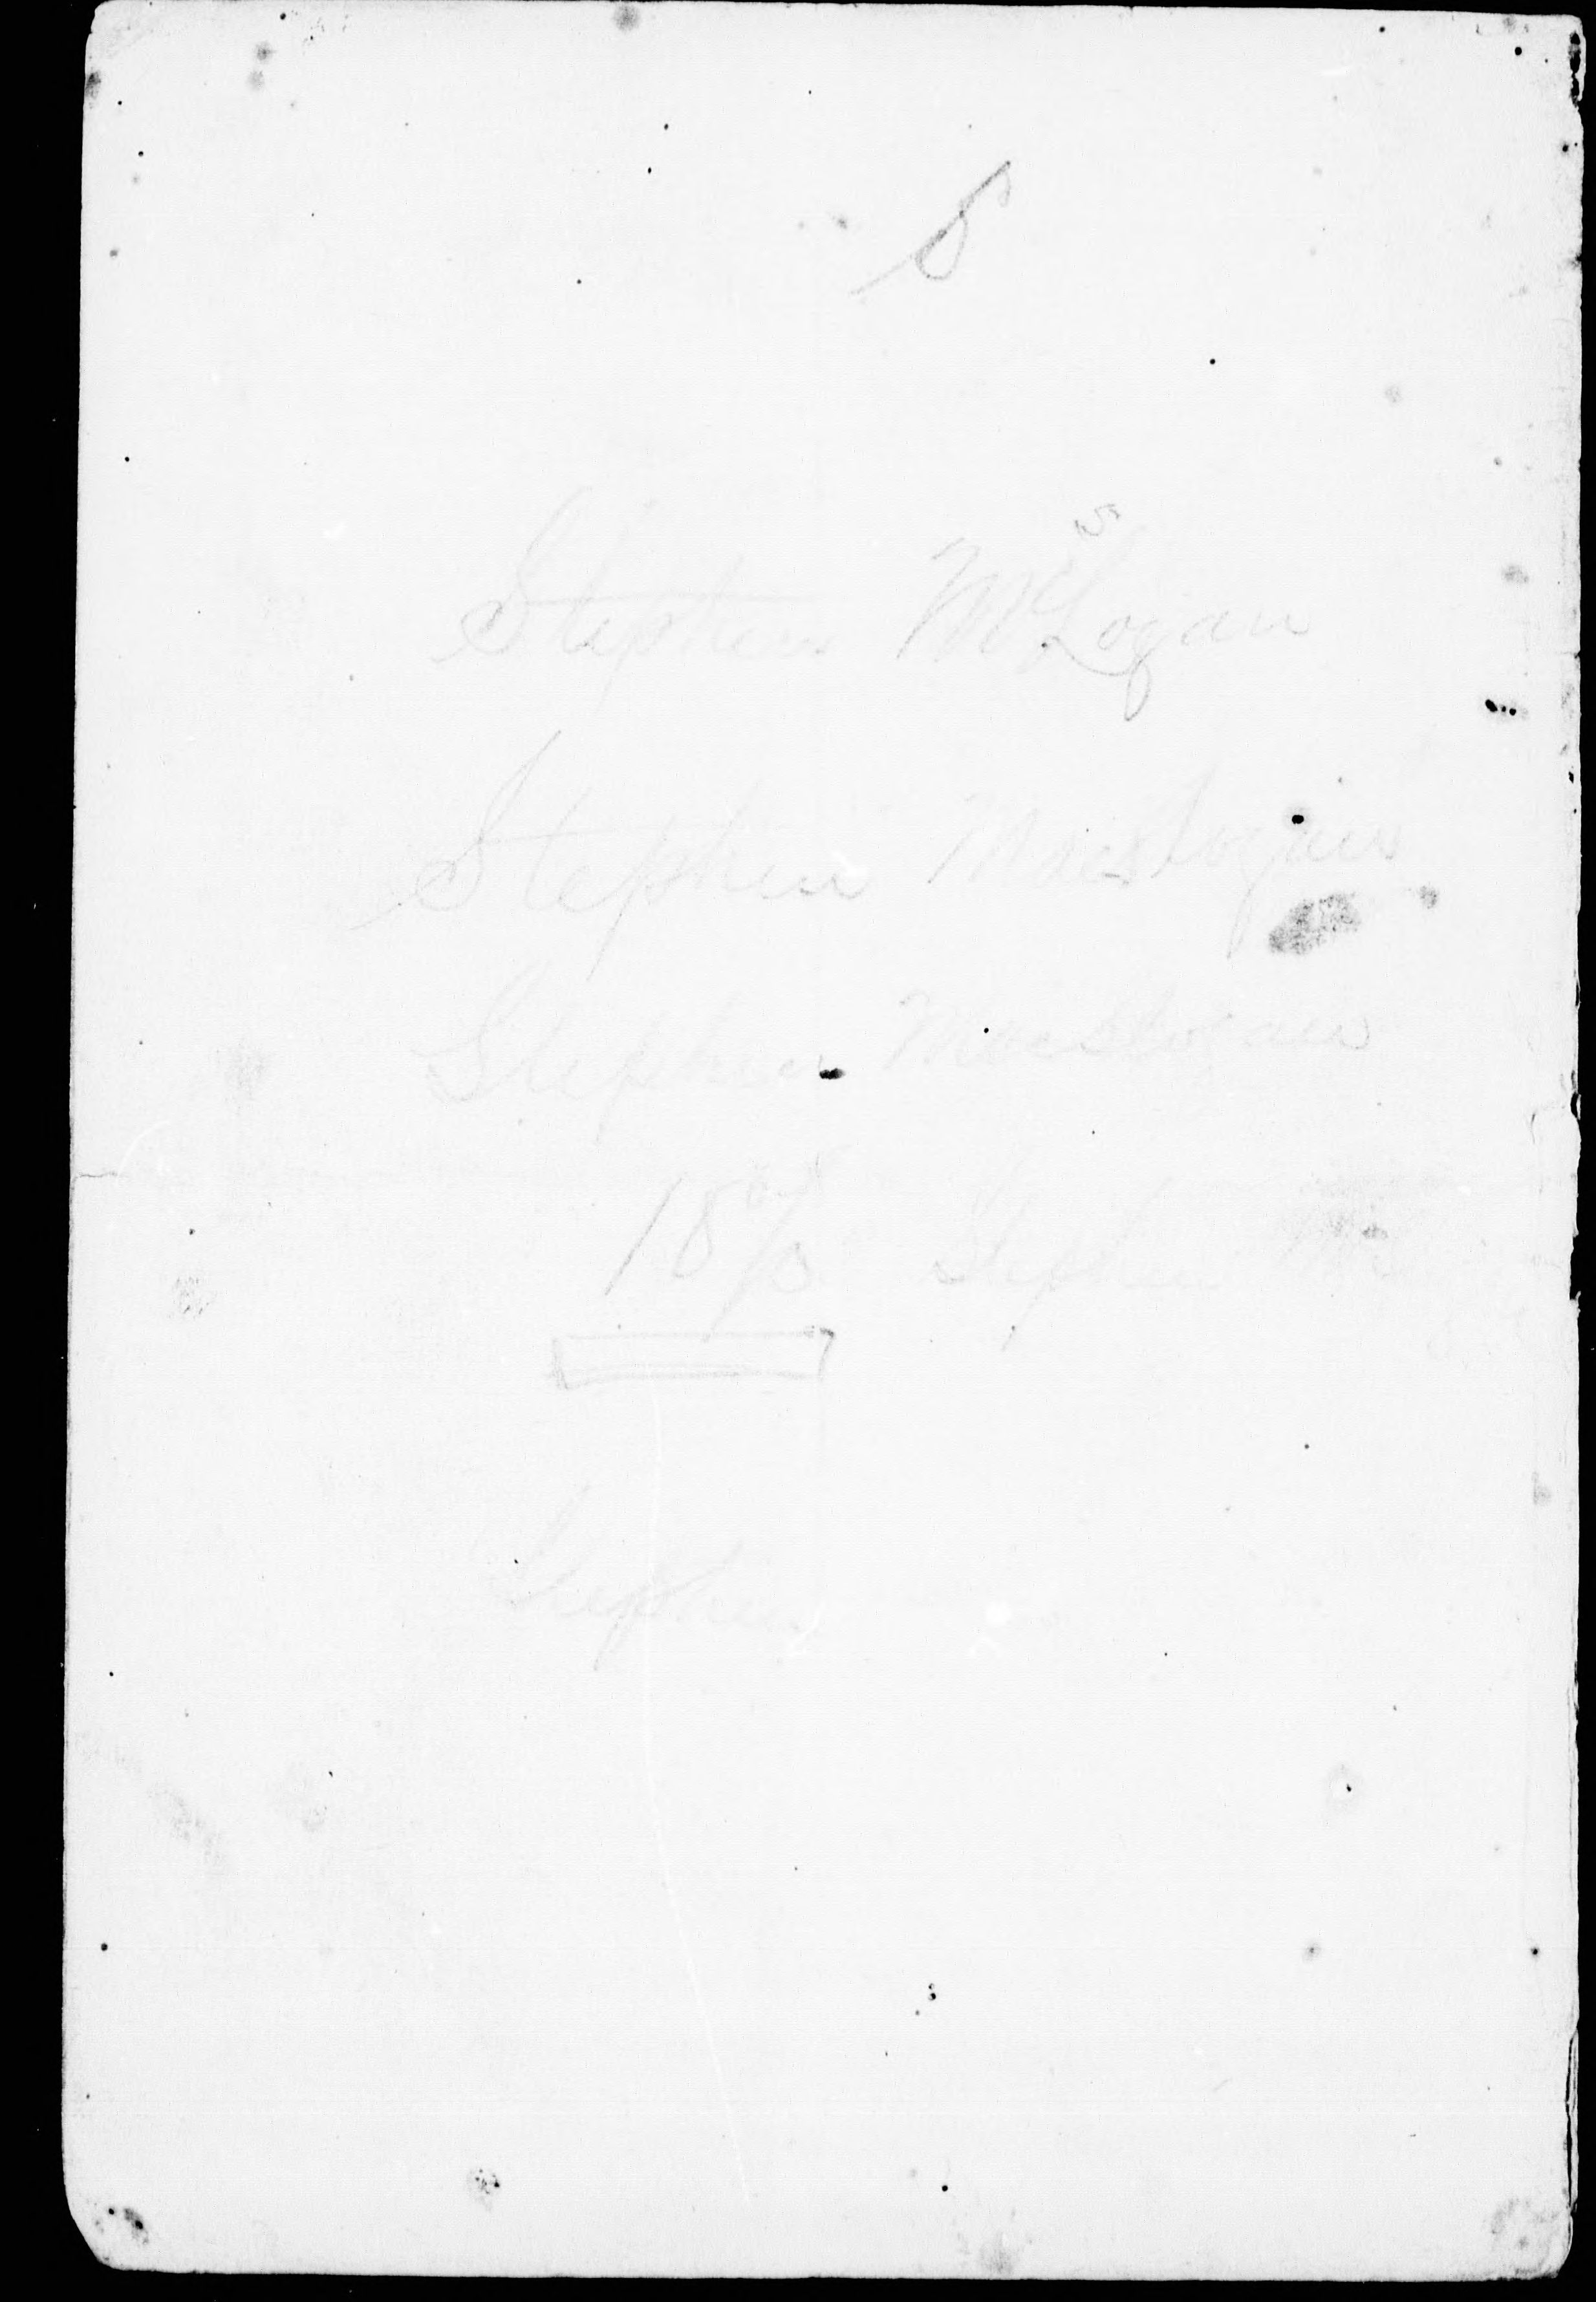 S
Stephen McsLogan
Stephen MacsLogan
Stephen MacsLogan
Stephen Mc
Stephen